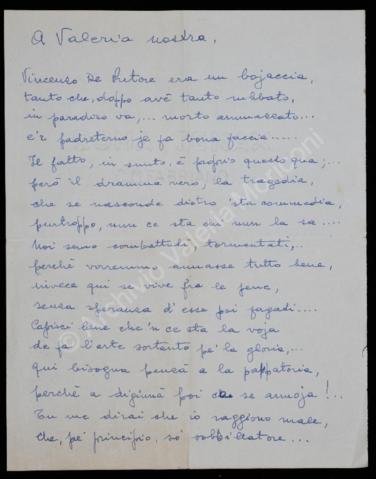 A Valeria nostra,
Vincenso De Pretore era un bojaccia,
tanto che, doppo avé tanto rubbato,
in paradiso va,... morto ammassato...
e 'r padreterno je fa bona faccia.....
Il fatto, in sunto, è proprio questo qua;...
però il dramma vero, la tragedia,
che se nasconde dietro 'sta commedia,
purtroppo, nun ce sta chi nun la sa....
Noi semo combattuti, tormentati,..
perché vorremmo annasse tutto bene,
nivece qui se vive fra le pene,
senza speranza d'esse poi pagadi....
Capisci bene che 'n ce sta la voja
de fa l'arte sortanto pe' la gloria,..
qui bisogna pensà a la pappatoria,
perché a diggiunà poi se annoja!..
Tu me dirai che io raggiono male,
che, pe' principio, so' sobbillatore...
© Archivio Valeria Moriconi